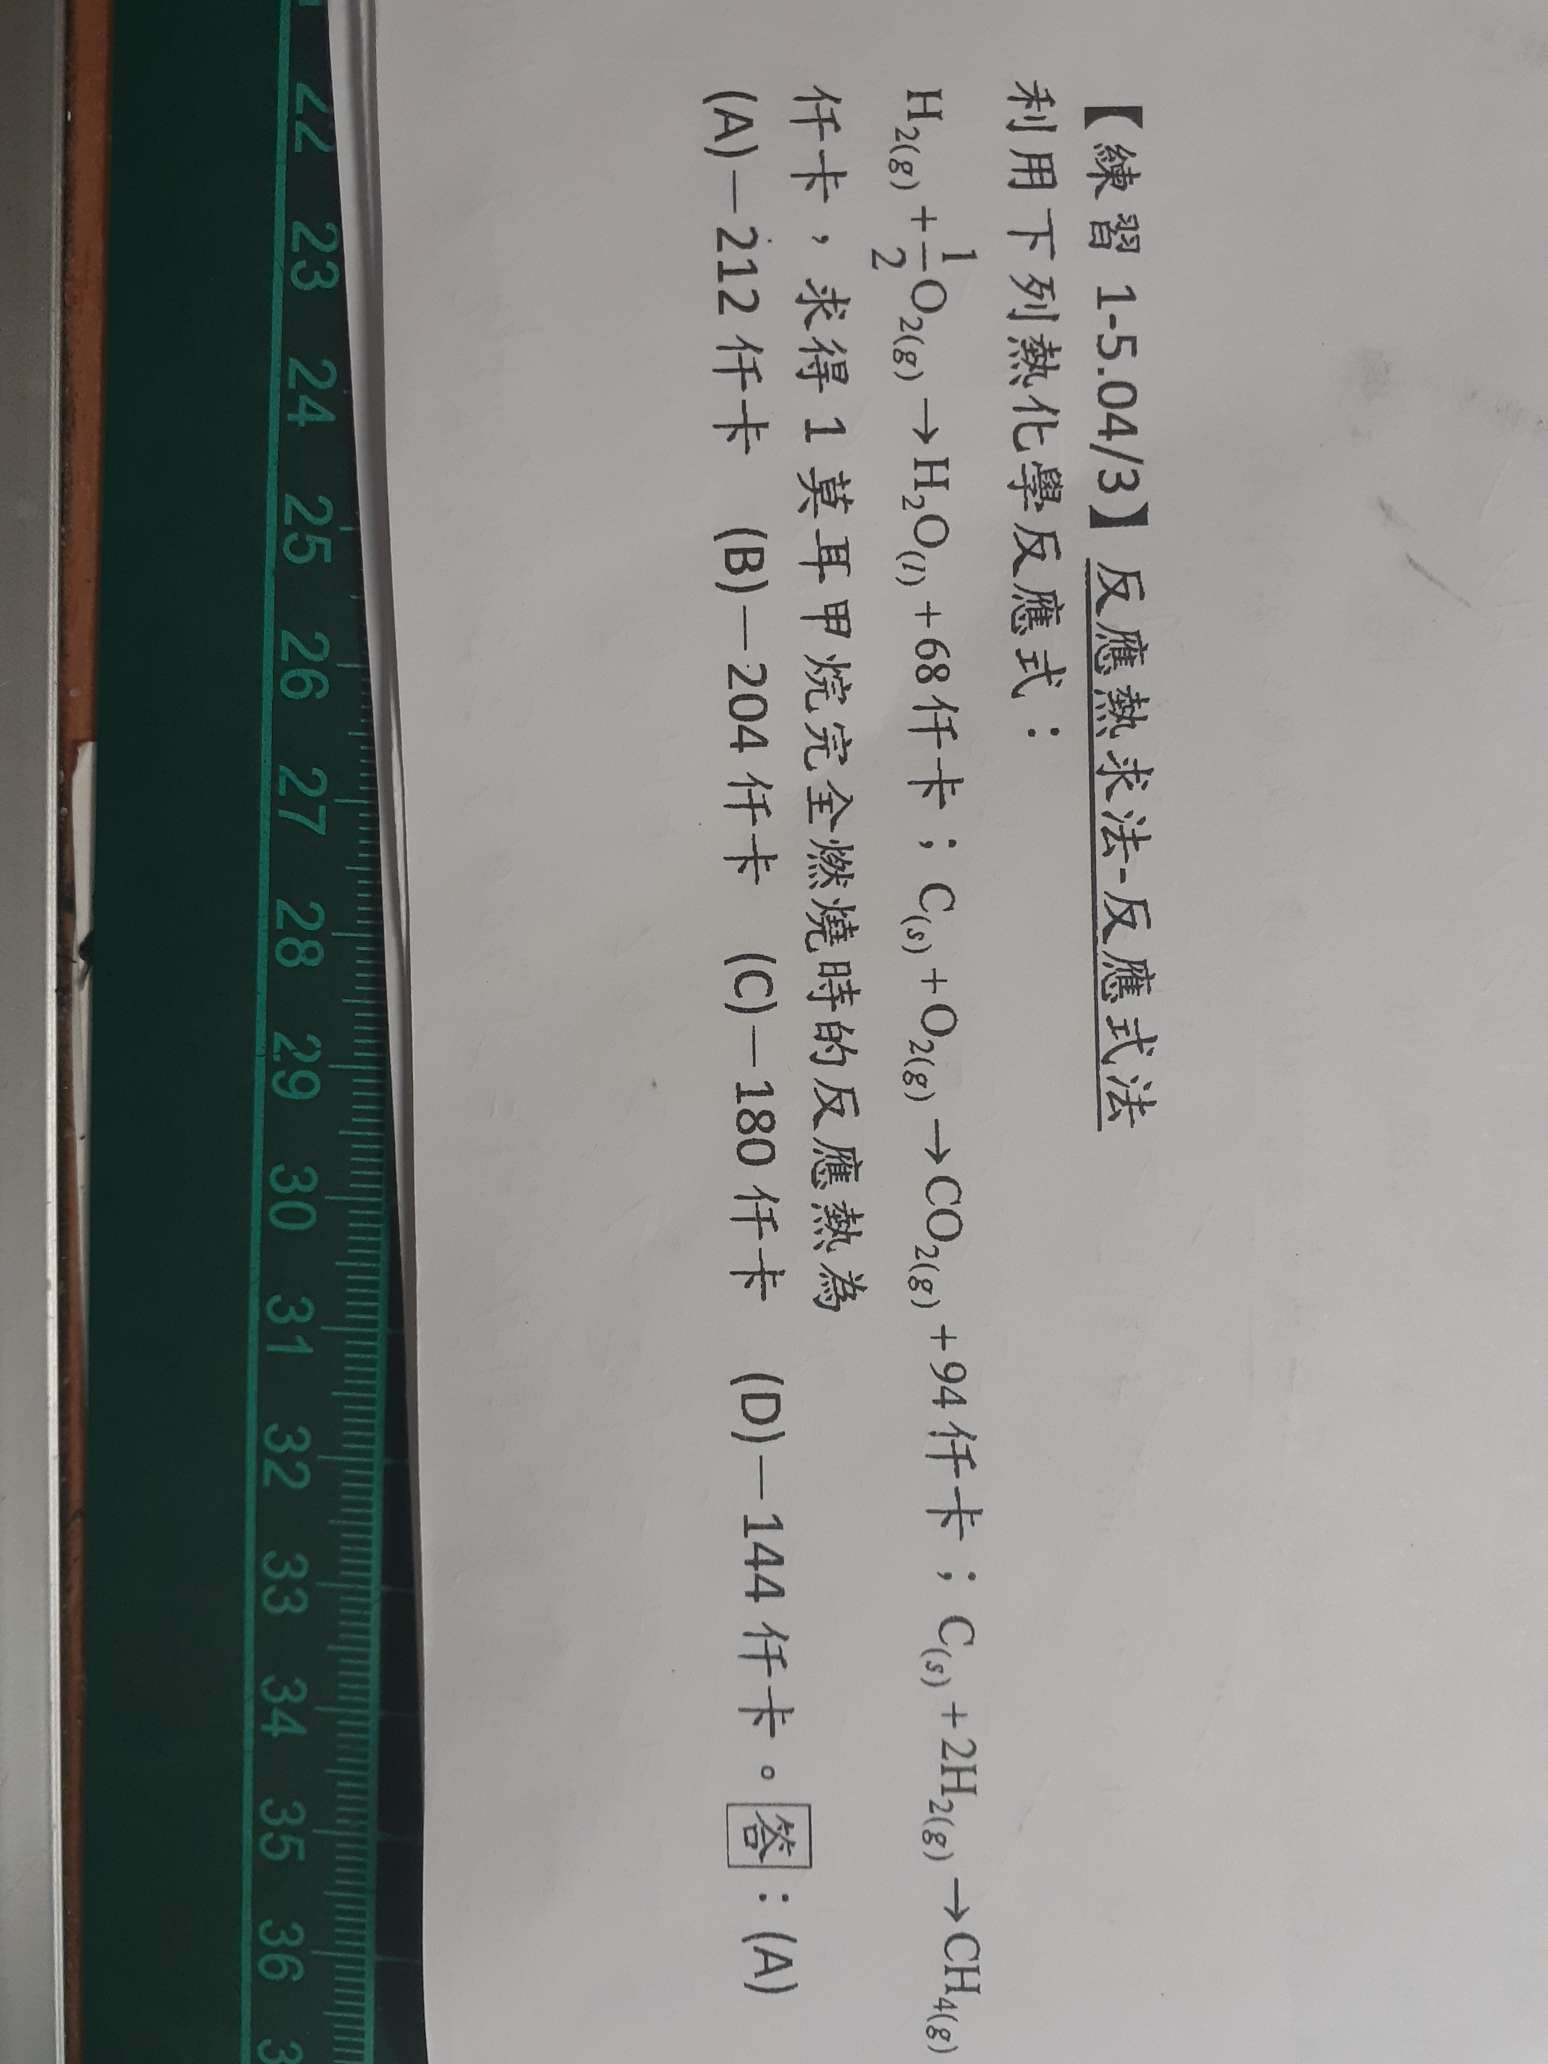 【練習 1-5.04/3】反應熱求法-反應式法
利用下列熱化學反應式：
H₂(g)+1/2O₂(g)→H₂O(l)+68仟卡；C(s)+O₂(g)→CO₂(g)+94仟卡；C(s)+2H₂(g)→CH₄(g)
仟卡，求得1莫耳甲烷完全燃燒時的反應熱為
(A)－212仟卡 (B)－204仟卡 (C)－180仟卡 (D)－144仟卡。答：(A)
22 23 24 25 26 27 28 29 30 31 32 33 34 35 36